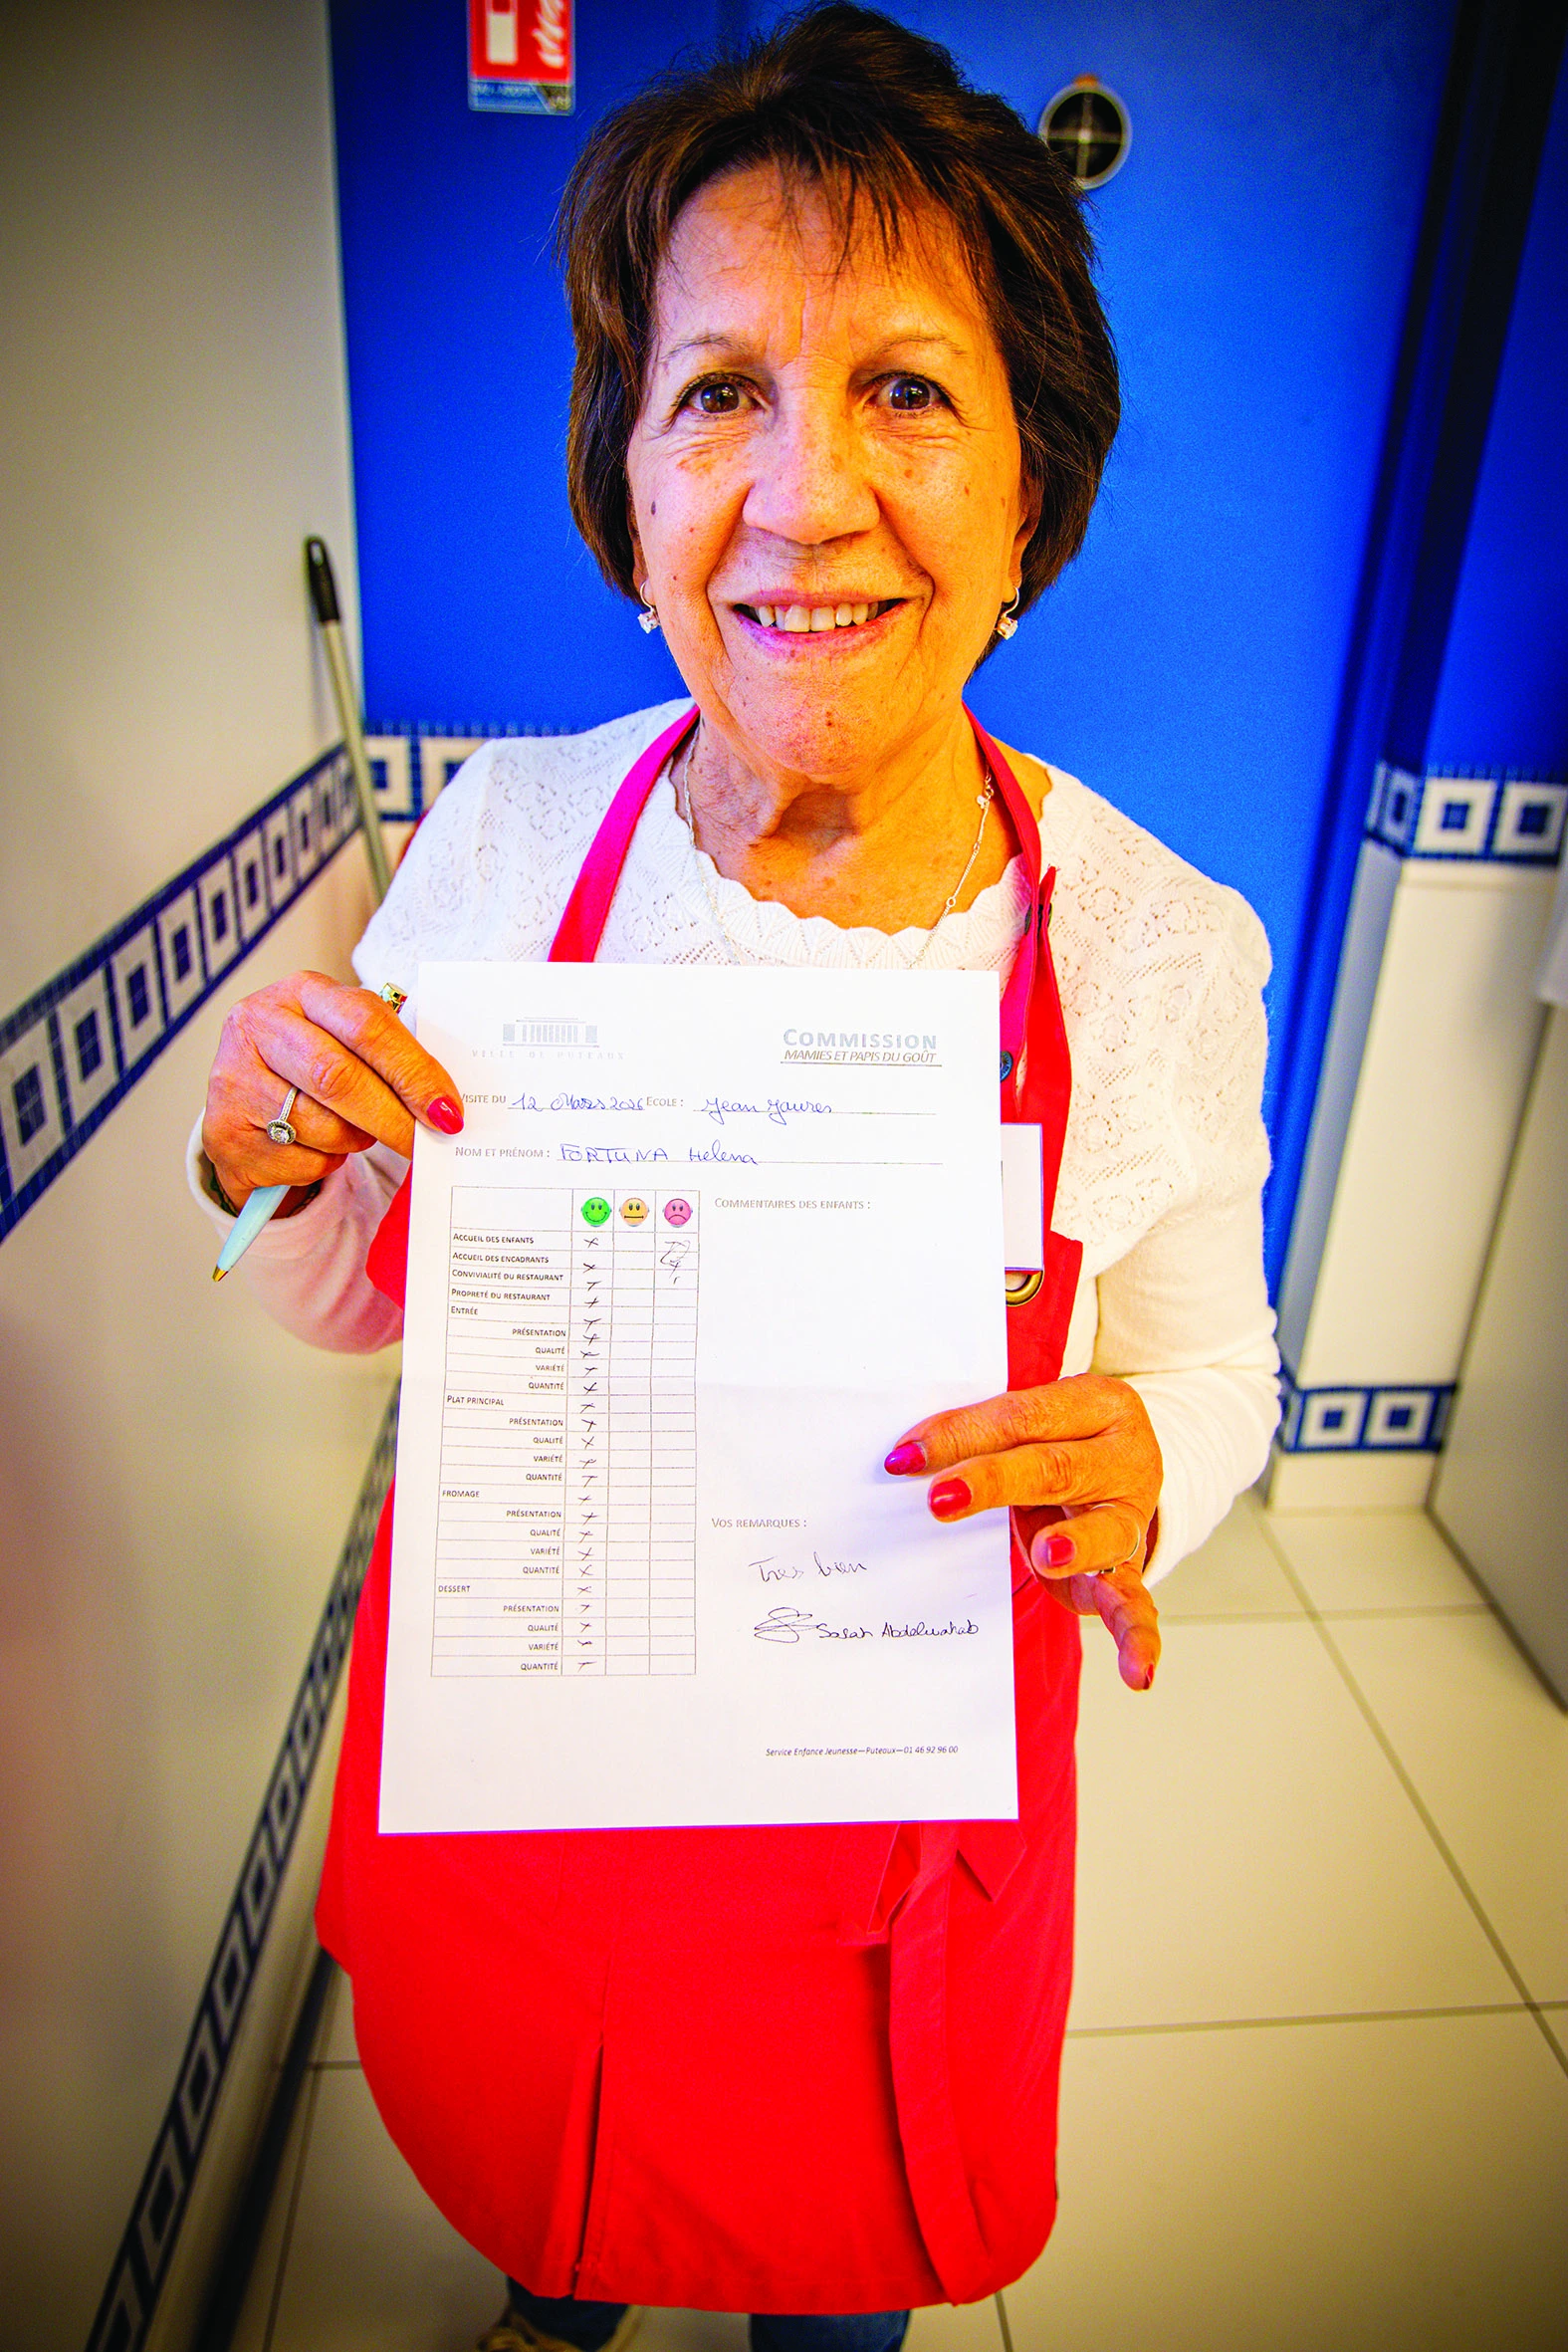 VILLE DE PUTEAUX
COMMISSION
MAMIES ET PAPIS DU GOÛT
VISITE DU 12 Mars 2026 ECOLE : Jean Jaures
NOM ET PRÉNOM : FORTUNA Helena
COMMENTAIRES DES ENFANTS :
ACCUEIL DES ENFANTS
ACCUEIL DES ENCADRANTS
CONVIVIALITÉ DU RESTAURANT
PROPRETÉ DU RESTAURANT
ENTRÉE
PRÉSENTATION
QUALITÉ
VARIÉTÉ
QUANTITÉ
PLAT PRINCIPAL
PRÉSENTATION
QUALITÉ
VARIÉTÉ
QUANTITÉ
FROMAGE
PRÉSENTATION
QUALITÉ
VARIÉTÉ
QUANTITÉ
DESSERT
PRÉSENTATION
QUALITÉ
VARIÉTÉ
QUANTITÉ
VOS REMARQUES :
Tres bien
Sarah Abdelwahab
Service Enfance Jeunesse—Puteaux—01 46 92 96 00